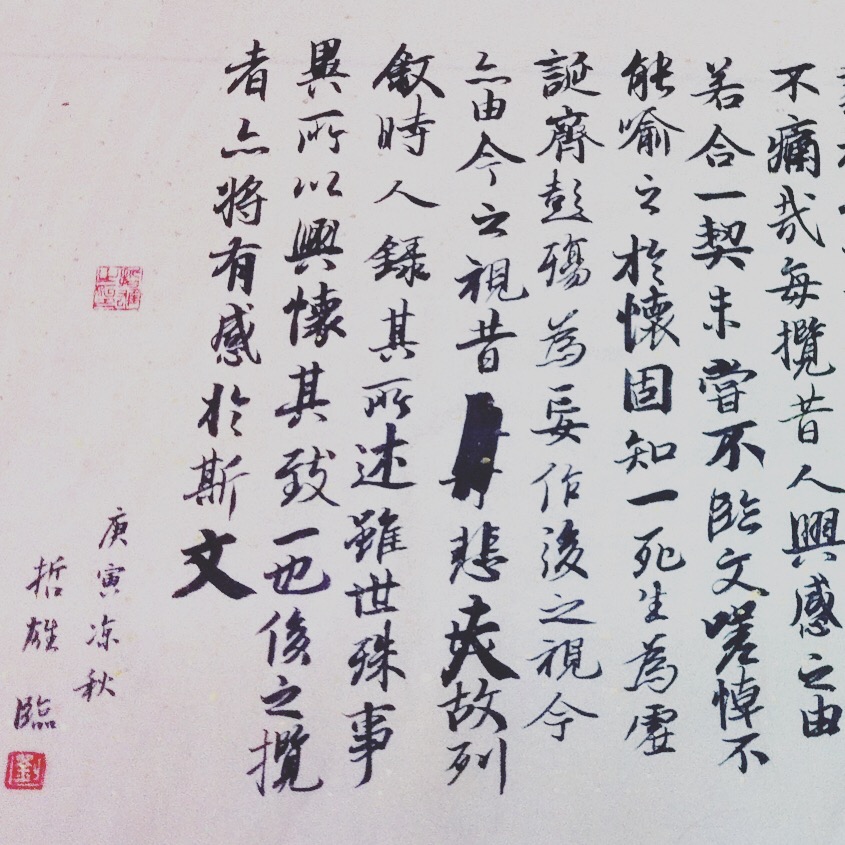 不痛哉每攬昔人興感之由
若合一契未嘗不臨文嗟悼不
能喻之於懷固知一死生為虛
誕齊彭殤為妄作後之視今
亦由今之視昔悲夫故列
敘時人錄其所述雖世殊事
異所以興懷其致一也後之攬
者亦將有感於斯文
庚寅凉秋
哲雄臨
劉